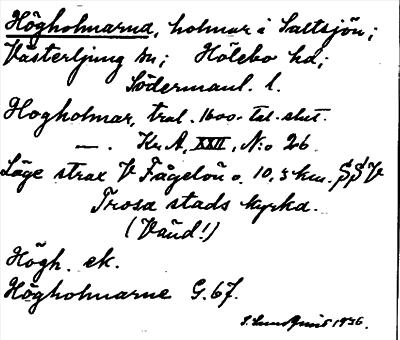 Högholmarna, holmar i Saltsjön;
Västerljung sn; Hölebo hd;
Södermanl. l.
Hogholmar, tral. 1600-tal. slut.
—. Kr.A, XXII, N:o 26.
Läge strax V Fågelön o. 10,5 km. SSV
Trosa stads kyrka.
(Vänd!)
Högh. ek.
Högholmarne G. 67.
S. Lundquist 1936.